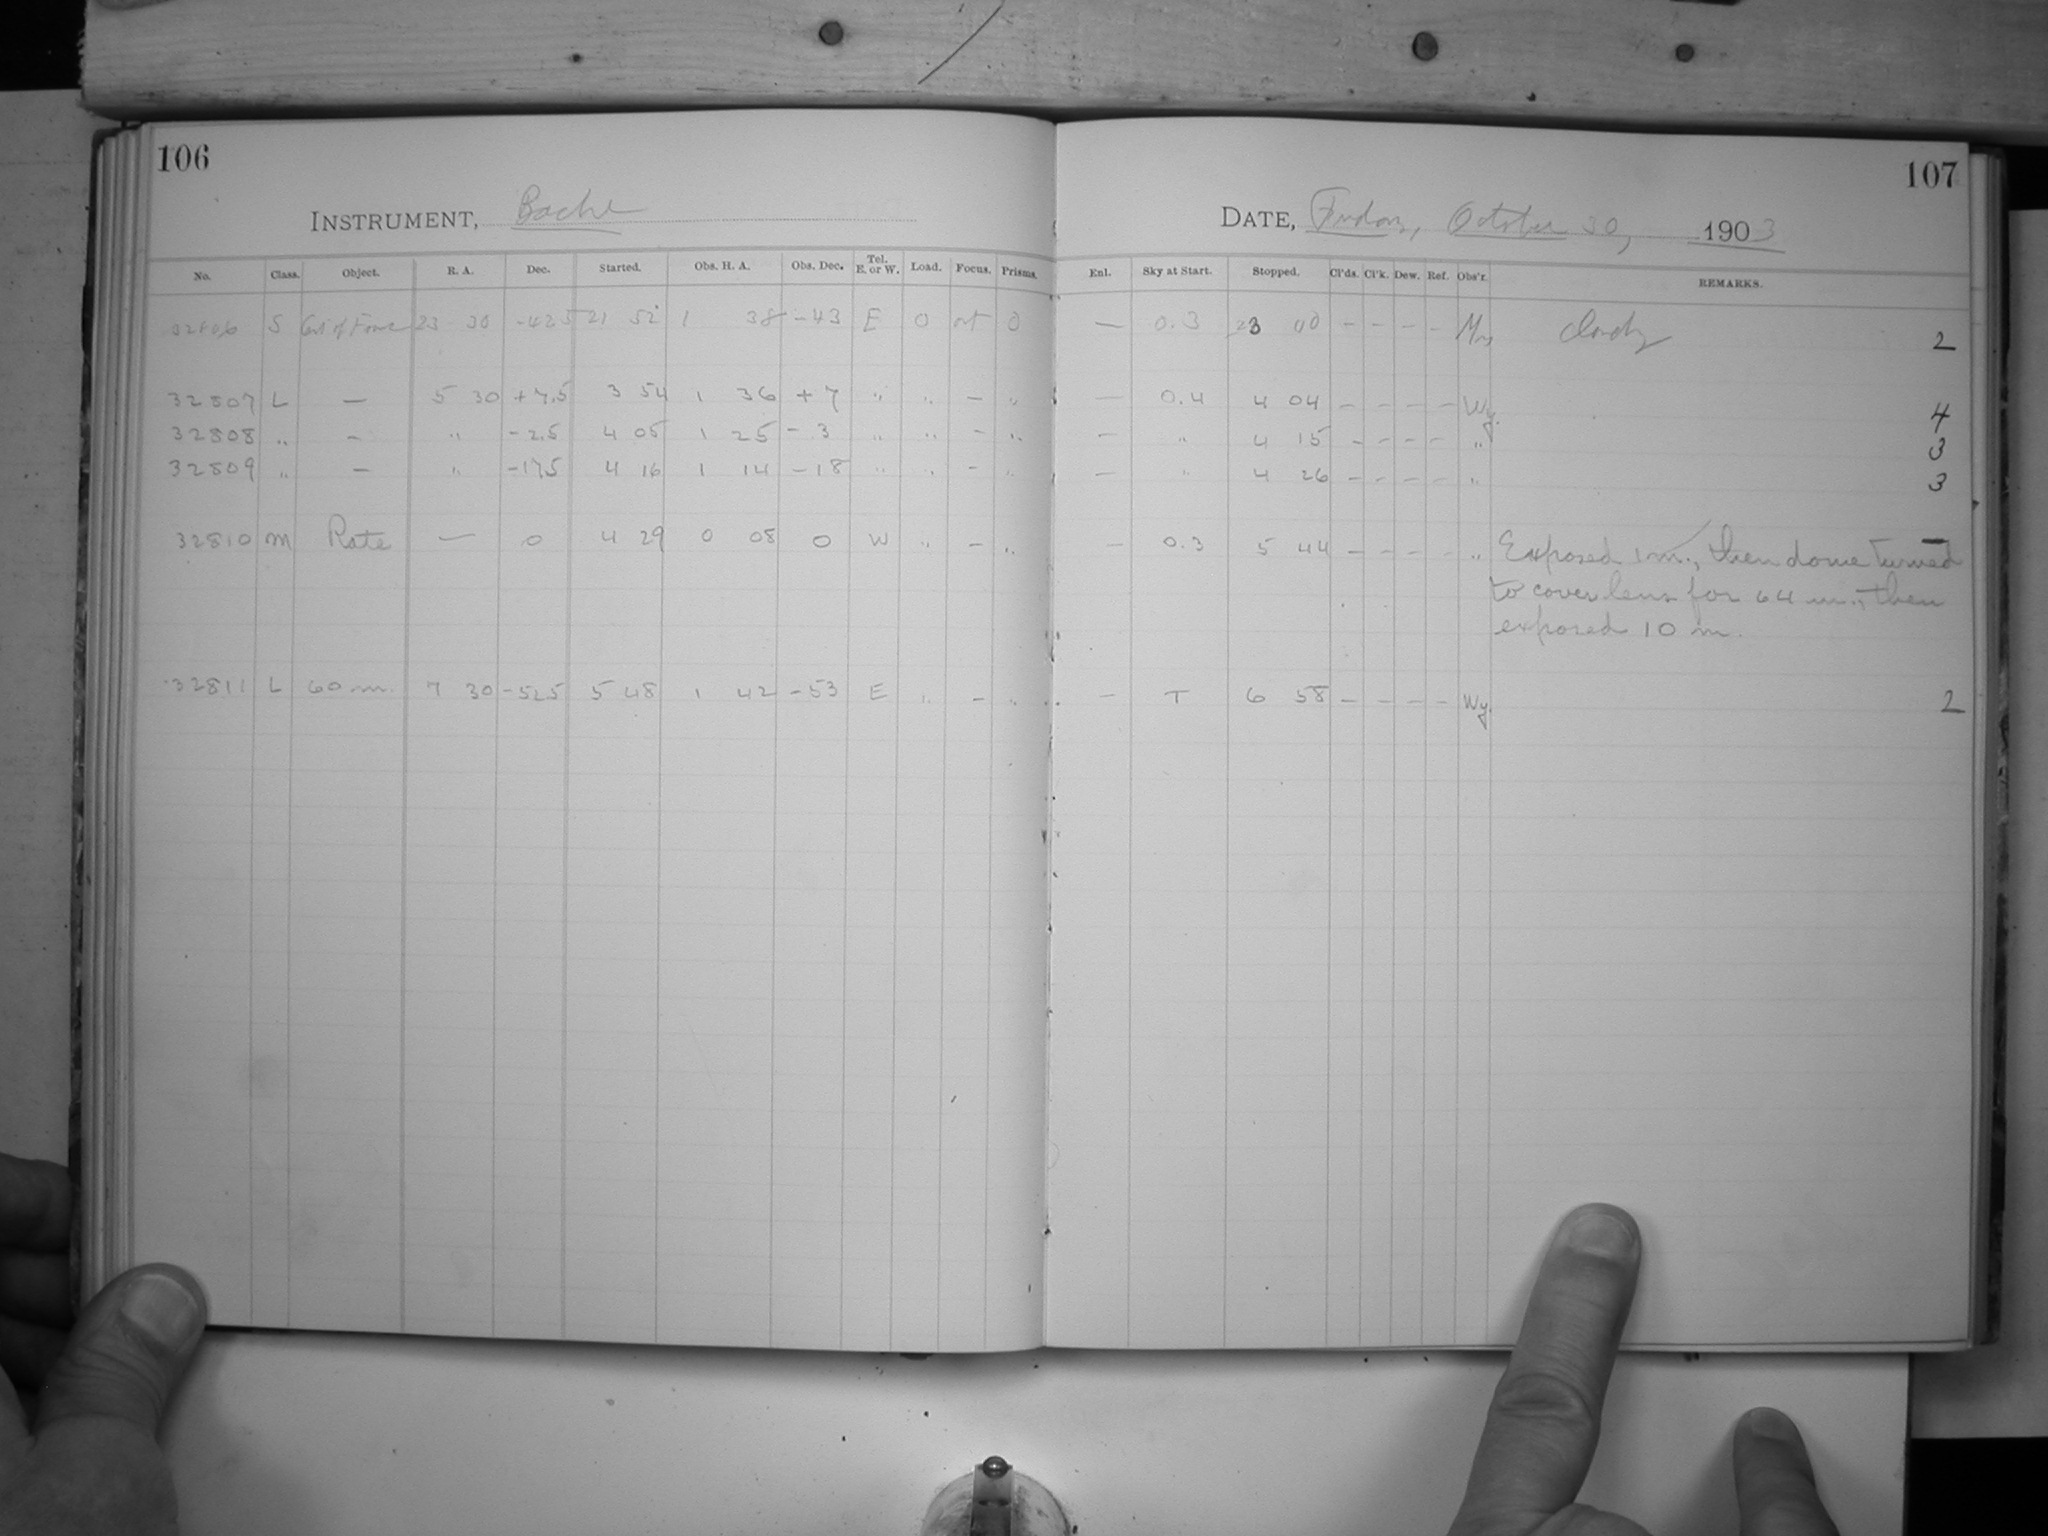 106
107
INSTRUMENT, Bache
DATE, Friday, October 30, 1903
No. Class. Object. R. A. Dec. Started. Obs. H. A. Obs. Dec. Tel. E. or W. Load. Focus. Prisms. Enl. Sky at Start. Stopped. Cl'ds. Cl'k. Dew. Ref. Obs'r. REMARKS.
32806 S 23 30 -42.5 21 52 1 38 -43 E 0 0 — 0.3 23 00 - - - - Cloudy 2
32807 L — 5 30 +7.5 3 54 1 36 +7 " " - " — 0.4 4 04 - - - - Wy. 4
32808 " - " -2.5 4 05 1 25 -3 " " - " — " 4 15 - - - - " 3
32809 " - " -17.5 4 16 1 14 -18 " " - " — " 4 26 - - - - " 3
32810 M Rate — 0 4 29 0 08 0 W " - " — 0.3 5 44 - - - - " Exposed 1 m., then dome turned —
to cover lens for 64 m., then
exposed 10 m.
32811 L 60 m. 7 30 -52.5 5 48 1 42 -53 E " - " — T 6 58 - - - - Wy. 2